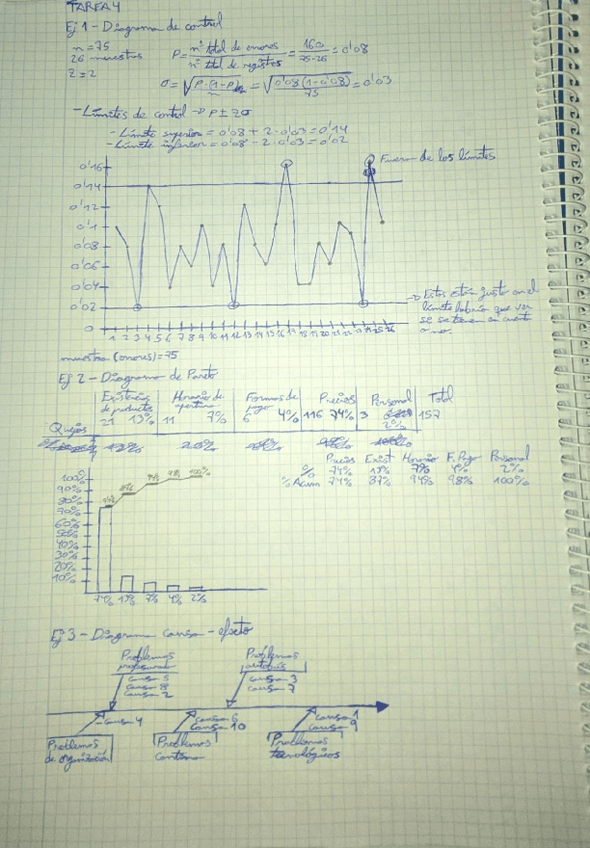 TAREA 4
Ej 1 - Diagrama de control
n = 75
26 muestras
z = 2
P = nº total de errores / nº total de registros = 160 / 75·26 = 0'08
σ = √(P·(1-P) / n) = √(0'08(1-0'08) / 75) = 0'03
- Límites de control → P ± zσ
- Límite superior = 0'08 + 2·0'03 = 0'14
- Límite inferior = 0'08 - 2·0'03 = 0'02
Fuera de los límites
0'16
0'14
0'12
0'1
0'08
0'06
0'04
0'02
0
1 2 3 4 5 6 7 8 9 10 11 12 13 14 15 16 17 18 19 20 21 22 23 24 25 26
→ Estos están justo en el
límite habría que ver
si se tienen en cuenta
o no.
muestra (errores) = 75
Ej 2 - Diagrama de Pareto
Existencia de productos Horario de apertura Formas de pago Precios Personal Total
Quejas 21 13% 11 7% 6 4% 116 74% 3 2% 157
Precios Exist Horario F. Pago Personal
% 74% 13% 7% 4% 2%
% Acum 74% 87% 94% 98% 100%
100%
90%
80%
70%
60%
50%
40%
30%
20%
10%
94% 98% 100%
74% 13% 7% 4% 2%
Ej 3 - Diagrama causa - efecto
Problemas
causa 5
causa 8
causa 2
Problemas
autobús
causa 3
causa 7
causa 4
causa 6
causa 10
causa 1
causa 9
Problemas
de organización
Problemas
Problemas
tecnológicos